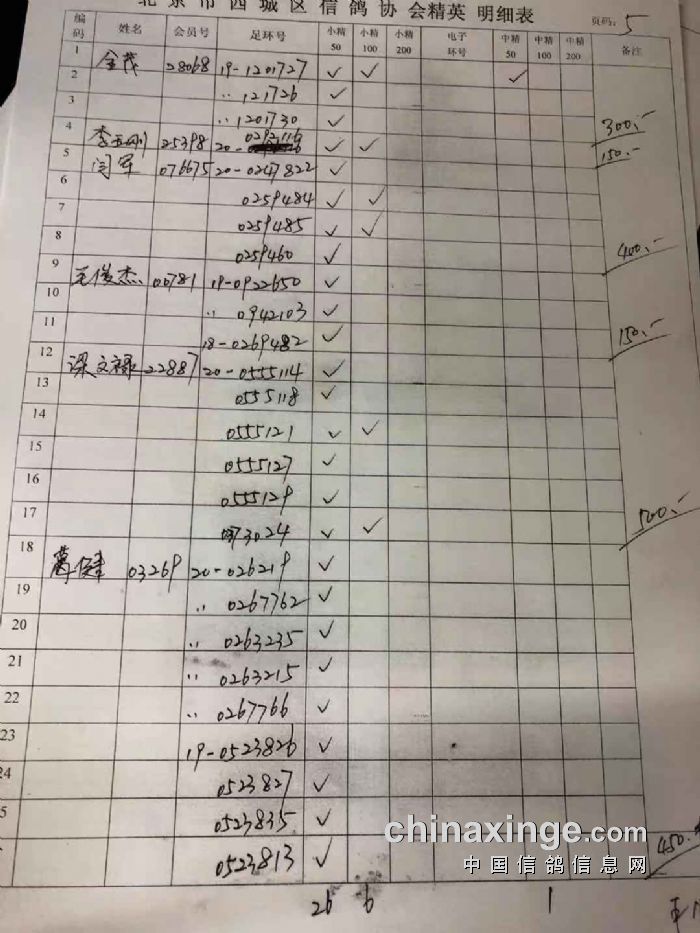 北京市西城区信鸽协会精英 明细表 页码: 5
编码 姓名 会员号 足环号 小精50 小精100 小精200 电子环号 中精50 中精100 中精200 备注
1 金茂 28068 19-1201727 ✓ ✓ ✓
2 〃 121726 ✓
3 〃 1201730 ✓ 300.-
4 李玉刚 25398 20-0292116 ✓ ✓ 150.-
5 闫军 076675 20-0247822 ✓
6 0259484 ✓ ✓
7 0259485 ✓ ✓
8 0259460 ✓ 400.-
9 王俊杰 00781 19-0922650 ✓
10 〃 0942103 ✓
11 18-0269482 ✓ 150.-
12 梁文禄 22887 20-0555114 ✓
13 0555118 ✓
14 0555121 ✓ ✓
15 0555127 ✓
16 0555129 ✓
17 073024 ✓ ✓ 500.-
18 葛健 03269 20-026219 ✓
19 〃 0267762 ✓
20 〃 0263235 ✓
21 〃 0263215 ✓
22 〃 0267766 ✓
23 19-0523826 ✓
24 0523827 ✓
5 0523835 ✓
0523813 ✓ 450.-
26 6 1
chinaxinge.com
中国信鸽信息网